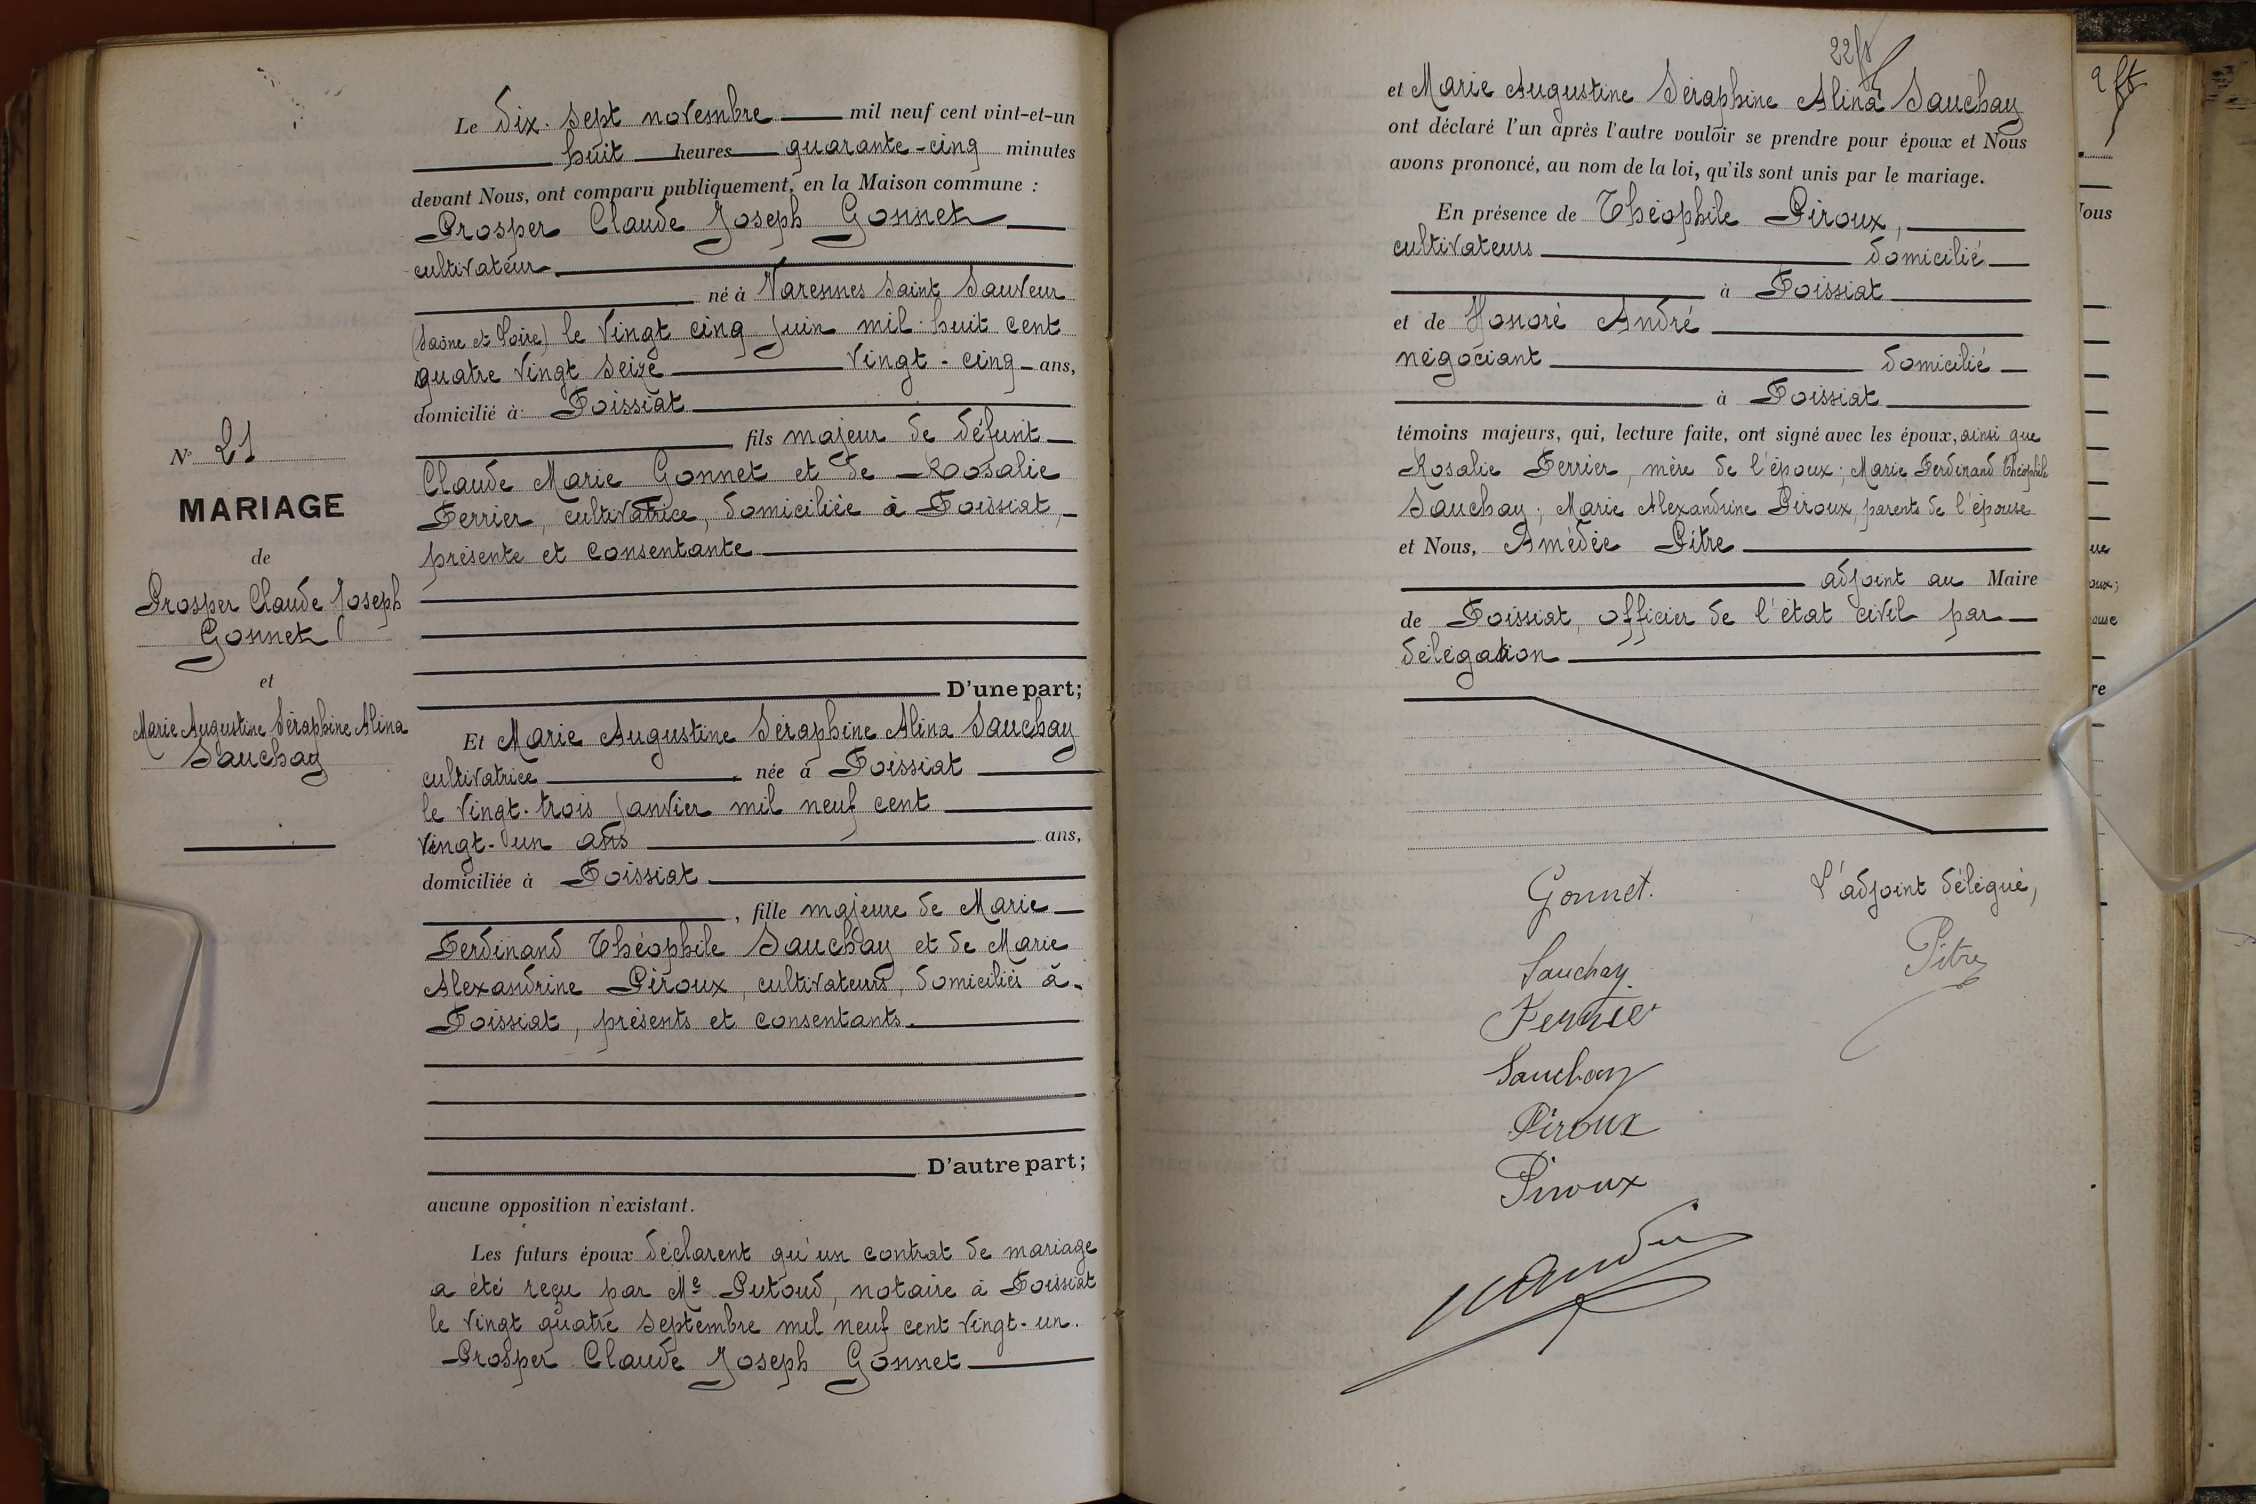 N° 21
MARIAGE
de
Prosper Claude Joseph
Gonnet
et
Marie Augustine Séraphine Alina
Sauchay
Le dix-sept novembre mil neuf cent vint-et-un
huit heures quarante-cinq minutes
devant Nous, ont comparu publiquement, en la Maison commune :
Prosper Claude Joseph Gonnet
cultivateur
né à Varennes Saint Sauveur
(Saône et Loire) le vingt cinq juin mil huit cent
quatre vingt seize vingt-cinq ans,
domicilié à Foissiat
fils majeur de défunt
Claude Marie Gonnet et de Rosalie
Ferrier, cultivatrice, domiciliée à Foissiat,
présente et consentante
D'une part;
Et Marie Augustine Séraphine Alina Sauchay
cultivatrice née à Foissiat
le vingt-trois janvier mil neuf cent
vingt-un ans ans,
domiciliée à Foissiat
, fille majeure de Marie
Ferdinand Théophile Sauchay et de Marie
Alexandrine Piroux, cultivateurs, domiciliés à
Foissiat, présents et consentants.
D'autre part;
aucune opposition n'existant.
Les futurs époux déclarent qu'un contrat de mariage
a été reçu par Me Putoud, notaire à Foissiat
le vingt quatre septembre mil neuf cent vingt-un.
Prosper Claude Joseph Gonnet
22
et Marie Augustine Séraphine Alina Sauchay
ont déclaré l'un après l'autre vouloir se prendre pour époux et Nous
avons prononcé, au nom de la loi, qu'ils sont unis par le mariage.
En présence de Théophile Piroux,
cultivateurs domicilié
à Foissiat
et de Honoré André
négociant domicilié
à Foissiat
témoins majeurs, qui, lecture faite, ont signé avec les époux, ainsi que
Rosalie Ferrier, mère de l'époux; Marie Ferdinand Théophile
Sauchay; Marie Alexandrine Piroux, parents de l'épouse
et Nous, Amédée Pitre
adjoint au Maire
de Foissiat, officier de l'état civil par
délégation
Gonnet.
L'adjoint délégué,
Sauchay.
Pitre
Ferrier
Sauchay
Piroux
Piroux
André
Nous
ue
oux;
ouse
re